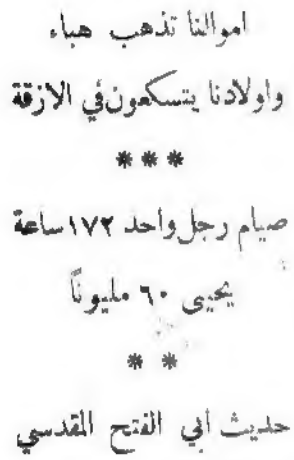 اموالنا تذهب هباء
واولادنا يتسكعون في الازقة
***
صيام رجل واحد ١٧٢ ساعة
يحيى ٦٠ مليونًا
* *
حديث ابي الفتح المقدسي